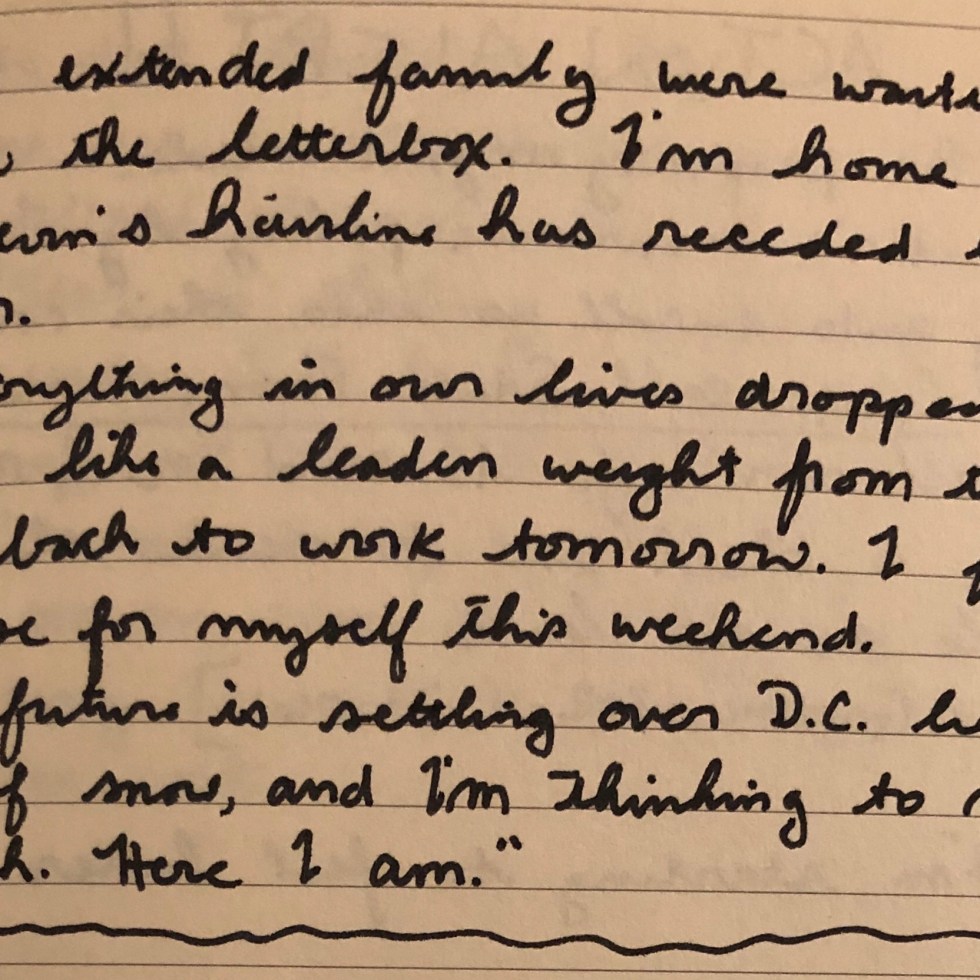 extended family were
the letterbox. I'm home
hairline has receded

everything in our lives dropped
like a leaden weight from
back to work tomorrow. I
for myself this weekend.
future is settling over D.C.
of snow, and I'm thinking to
Here I am."